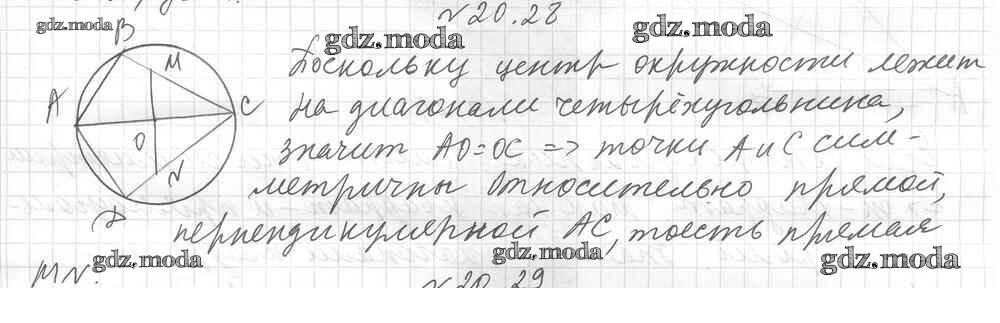 №20.28
gdz.moda
gdz.moda
gdz.moda
B
M
A
C
O
N
D
Поскольку центр окружности лежит
на диагонали четырёхугольника,
значит AO=OC => точки A и C сим-
метричны относительно прямой,
перпендикулярной AC, тоесть прямая
MN.
gdz.moda
gdz.moda
gdz.moda
№20.29